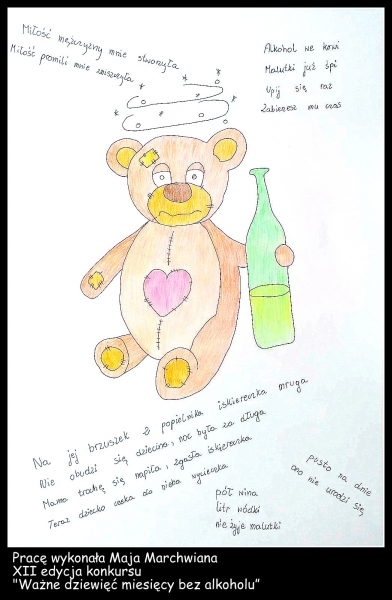 Miłość mężczyzny mnie stworzyła
Miłość promili mnie zniszczyła
Alkohol we krwi
Malutki już śpi
Upij się raz
Zabierzesz mu czas
Na jej brzuszek z popielnika iskiereczka mruga
Nie obudzi się dziecina, noc była za długa
Mama trochę się napiła, zgasła iskiereczka
Teraz dziecko czeka do nieba wycieczka
pusto na dnie
ono nie urodzi się
pół wina
litr wódki
nie żyje malutki
Pracę wykonała Maja Marchwiana
XII edycja konkursu
"Ważne dziewięć miesięcy bez alkoholu”